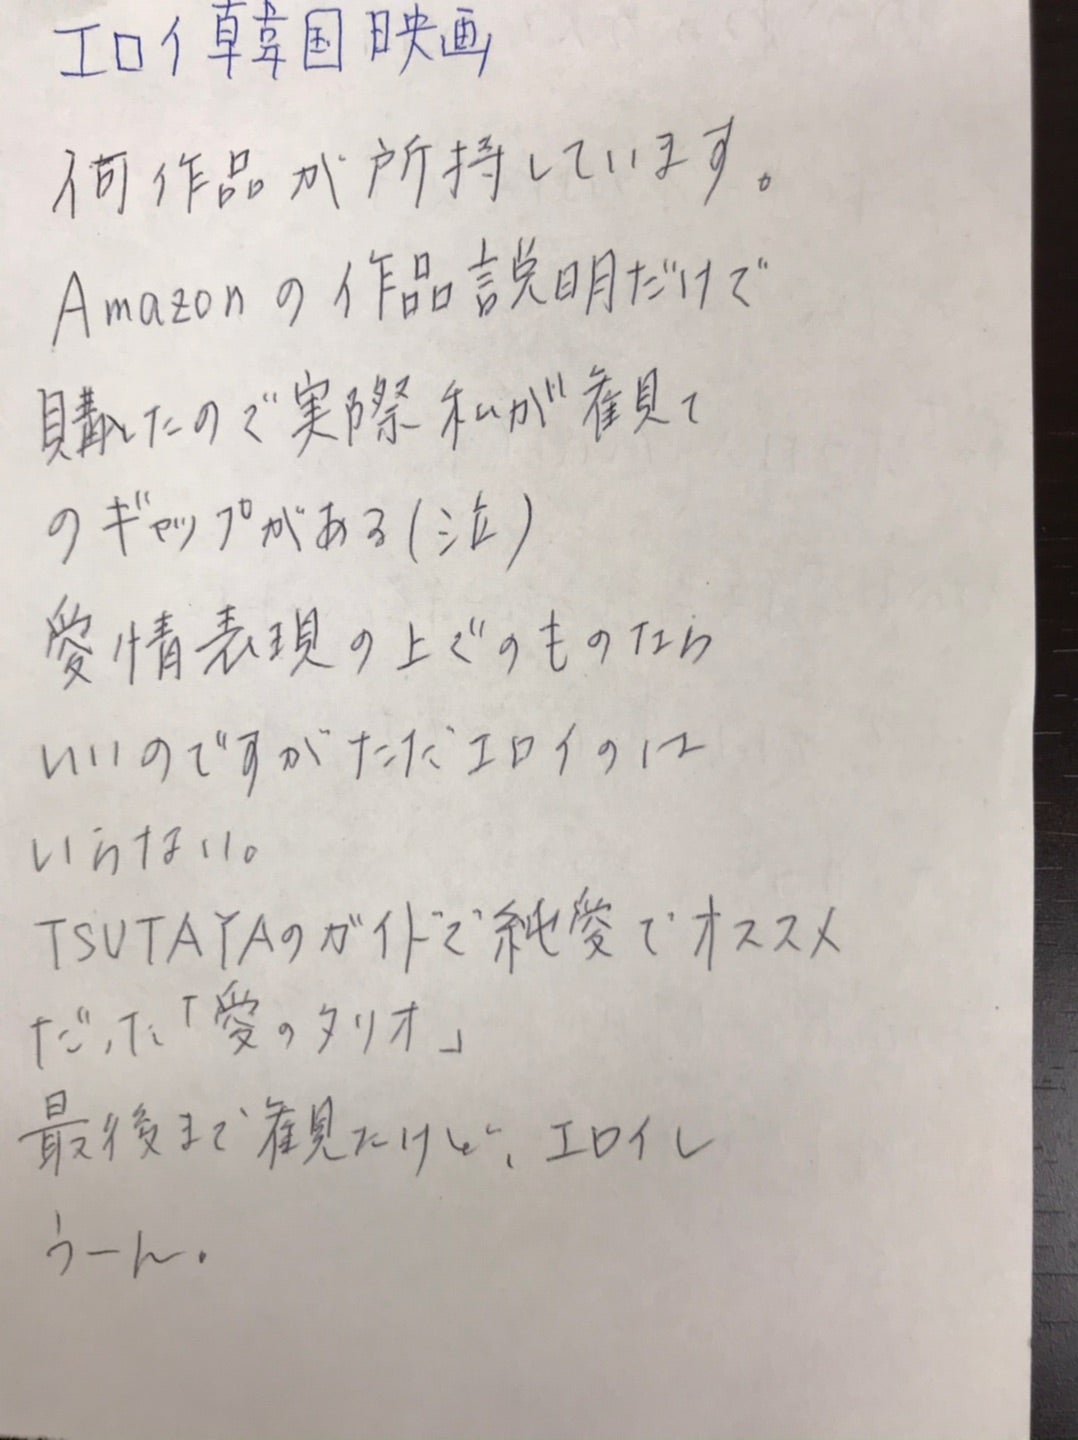 エロイ韓国映画
何作品が所持しています。
Amazonの作品説明だけで
購したので実際私が観て
のギャップがある(泣)
愛情表現の上でのものなら
いいのですがただエロイのは
いらない。
TSUTAYAのガイドで純愛でオススメ
だった「愛のタリオ」
最後まで観たけど、エロイし
うーん.